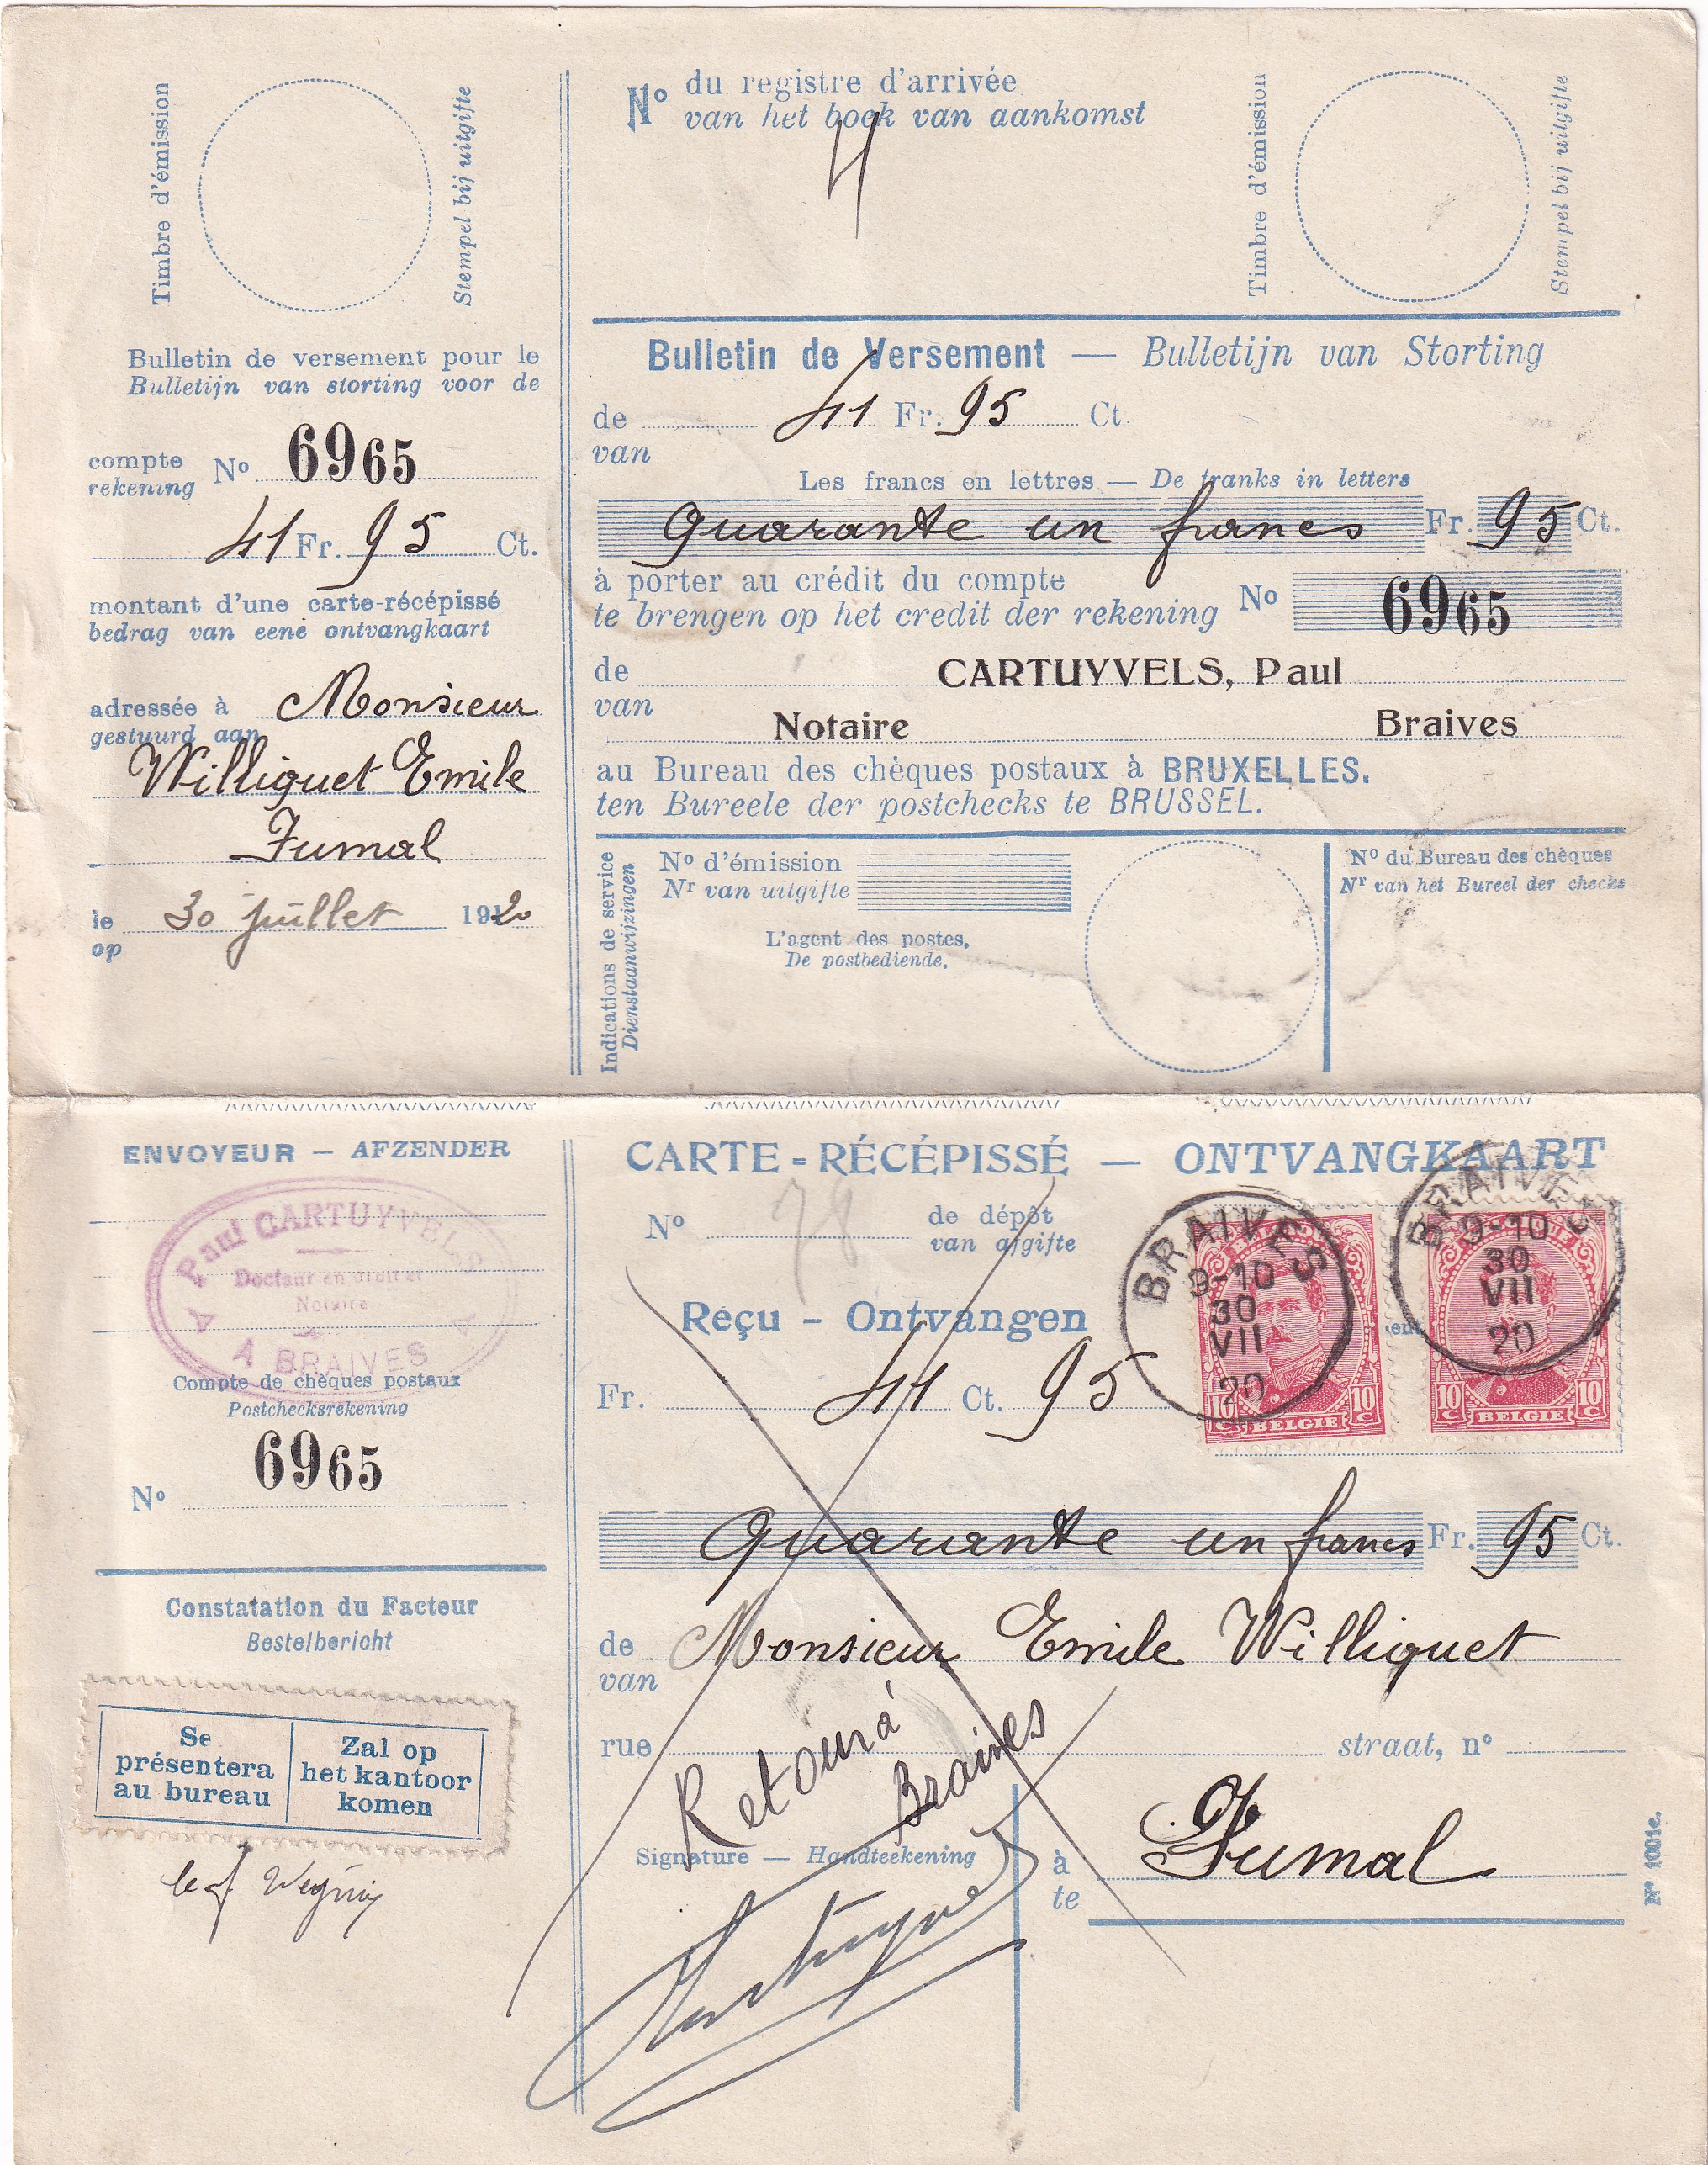 Timbre d'émission
Stempel bij uitgifte
Bulletin de versement pour le
Bulletijn van storting voor de
compte
rekening
No 6965
41 Fr. 95 Ct.
montant d'une carte-récépissé
bedrag van eene ontvangkaart
adressée à Monsieur
gestuurd aan
Williquet Emile
Fumal
le 30 juillet 1920
op
No du registre d'arrivée
van het boek van aankomst
4
Timbre d'émission
Stempel bij uitgifte
Bulletin de Versement — Bulletijn van Storting
de 41 Fr. 95 Ct.
van
Les francs en lettres — De franks in letters
Quarante un francs Fr. 95 Ct.
à porter au crédit du compte
te brengen op het credit der rekening
No 6965
de CARTUYVELS, Paul
van
Notaire Braives
au Bureau des chèques postaux à BRUXELLES.
ten Bureele der postchecks te BRUSSEL.
Indications de service
Dienstaanwijzingen
No d'émission
Nr van uitgifte
L'agent des postes,
De postbediende,
No du Bureau des chèques
Nr van het Bureel der checks
ENVOYEUR — AFZENDER
Paul CARTUYVELS
Docteur en droit et
Notaire
A BRAIVES
Compte de chèques postaux
Postchecksrekening
6965
No
Constatation du Facteur
Bestelbericht
Se
présentera
au bureau
Zal op
het kantoor
komen
le f
CARTE-RÉCÉPISSÉ — ONTVANGKAART
No 78 de dépôt
van afgifte
Reçu - Ontvangen
Fr. 41 Ct. 95
BRAIVES
9-10
30
VII
20
10 C BELGIE 10 C
BRAIVES
9-10
30
VII
20
10 C BELGIE 10 C
Quarante un francs Fr. 95 Ct.
de Monsieur Emile Williquet
van
rue straat, no
Retour à
Braives
Signature — Handteekening
Cartuyvels
à Fumal
te
No 1001e.